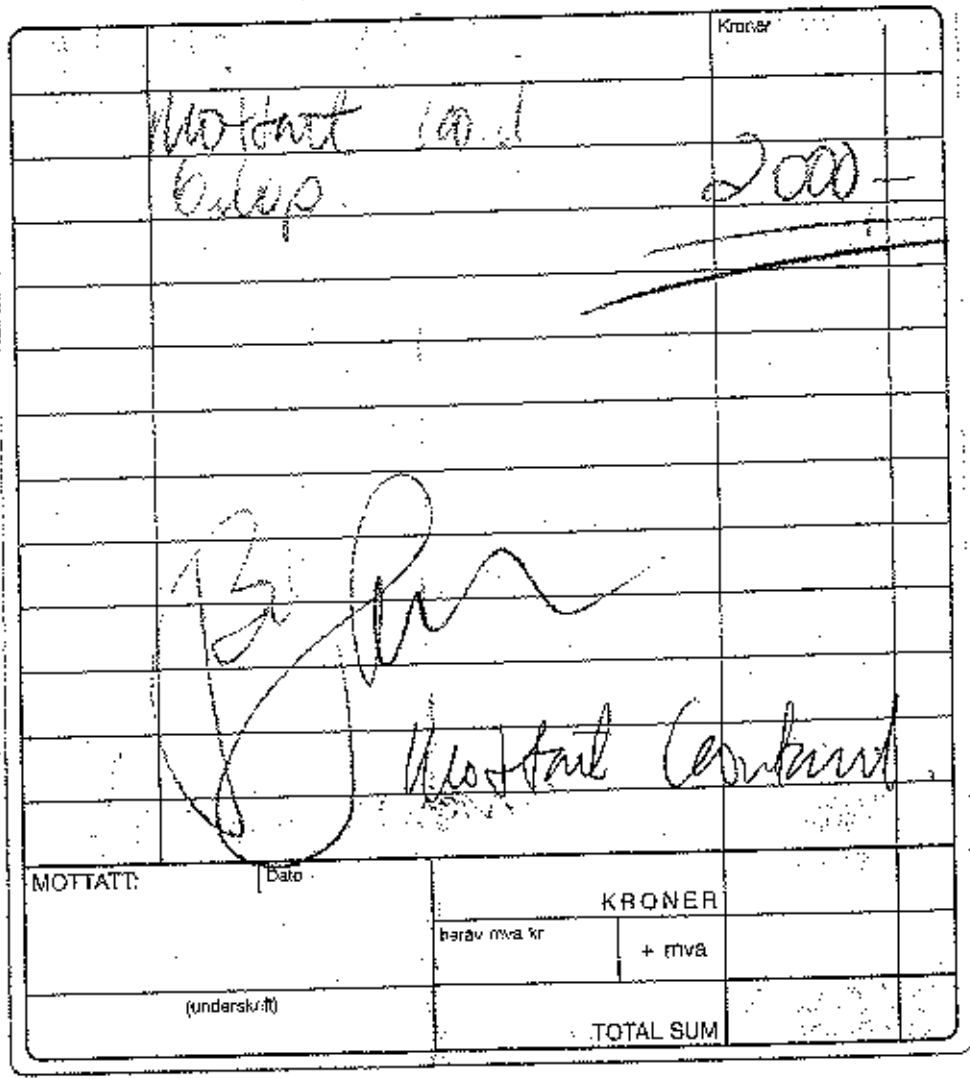 Kroner
Mottatt
2000 -
Mottatt Contant.
MOTTATT:
Dato
KRONER
herav mva kr
+ mva
(underskrift)
TOTAL SUM